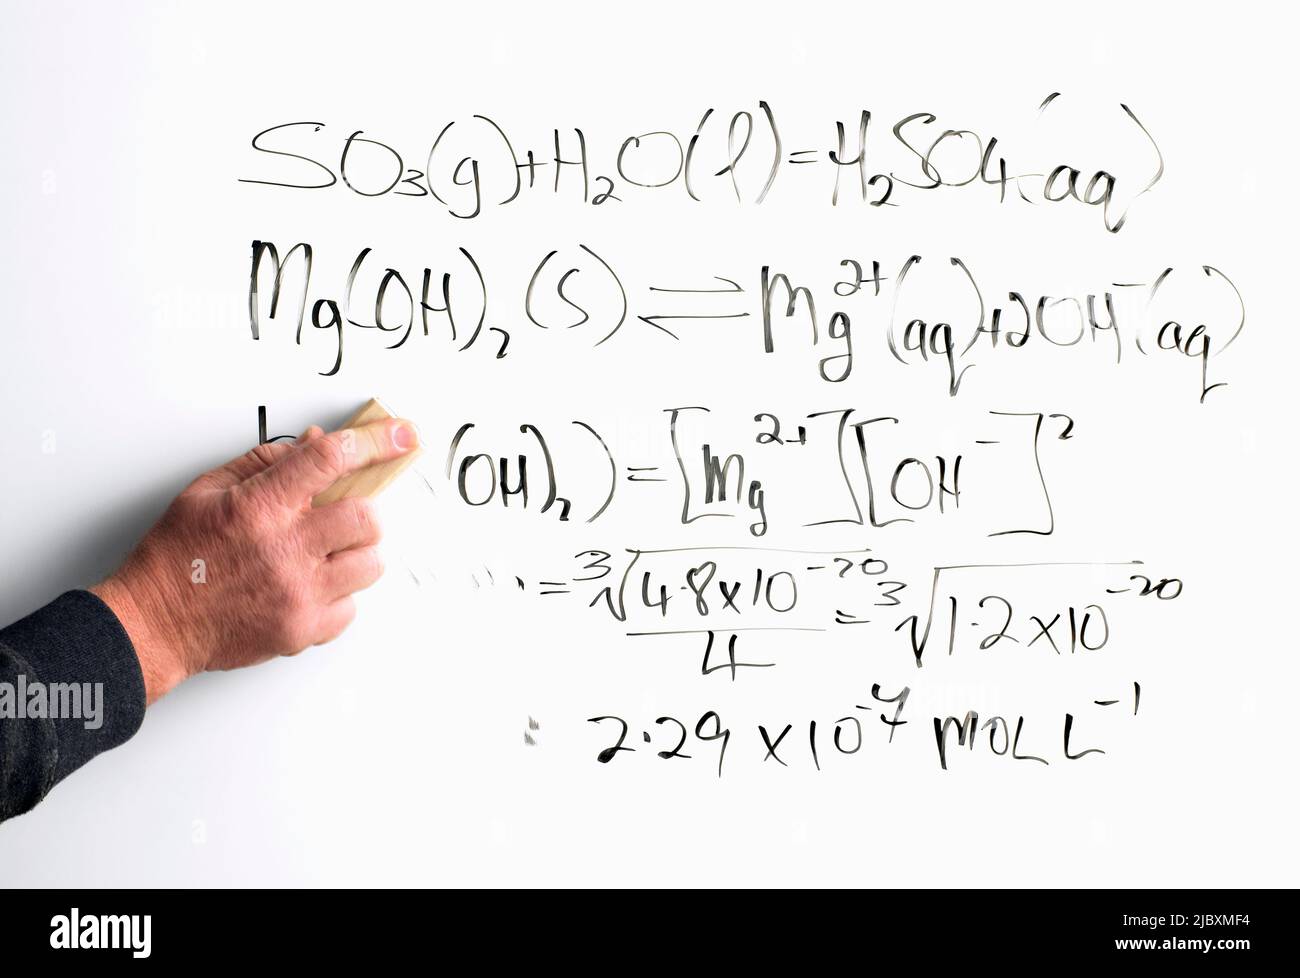 SO₃(g)+H₂O(l)=H₂SO4(aq)
Mg(OH)₂(s)⇌Mg²⁺(aq)+2OH⁻(aq)
(OH)₂)=[Mg²⁺][OH⁻]²
=³√4.8x10⁻²⁰/4=³√1.2x10⁻²⁰
: 2.29x10⁻⁷ MOL L⁻¹
alamy
Image ID: 2JBXMF4
www.alamy.com